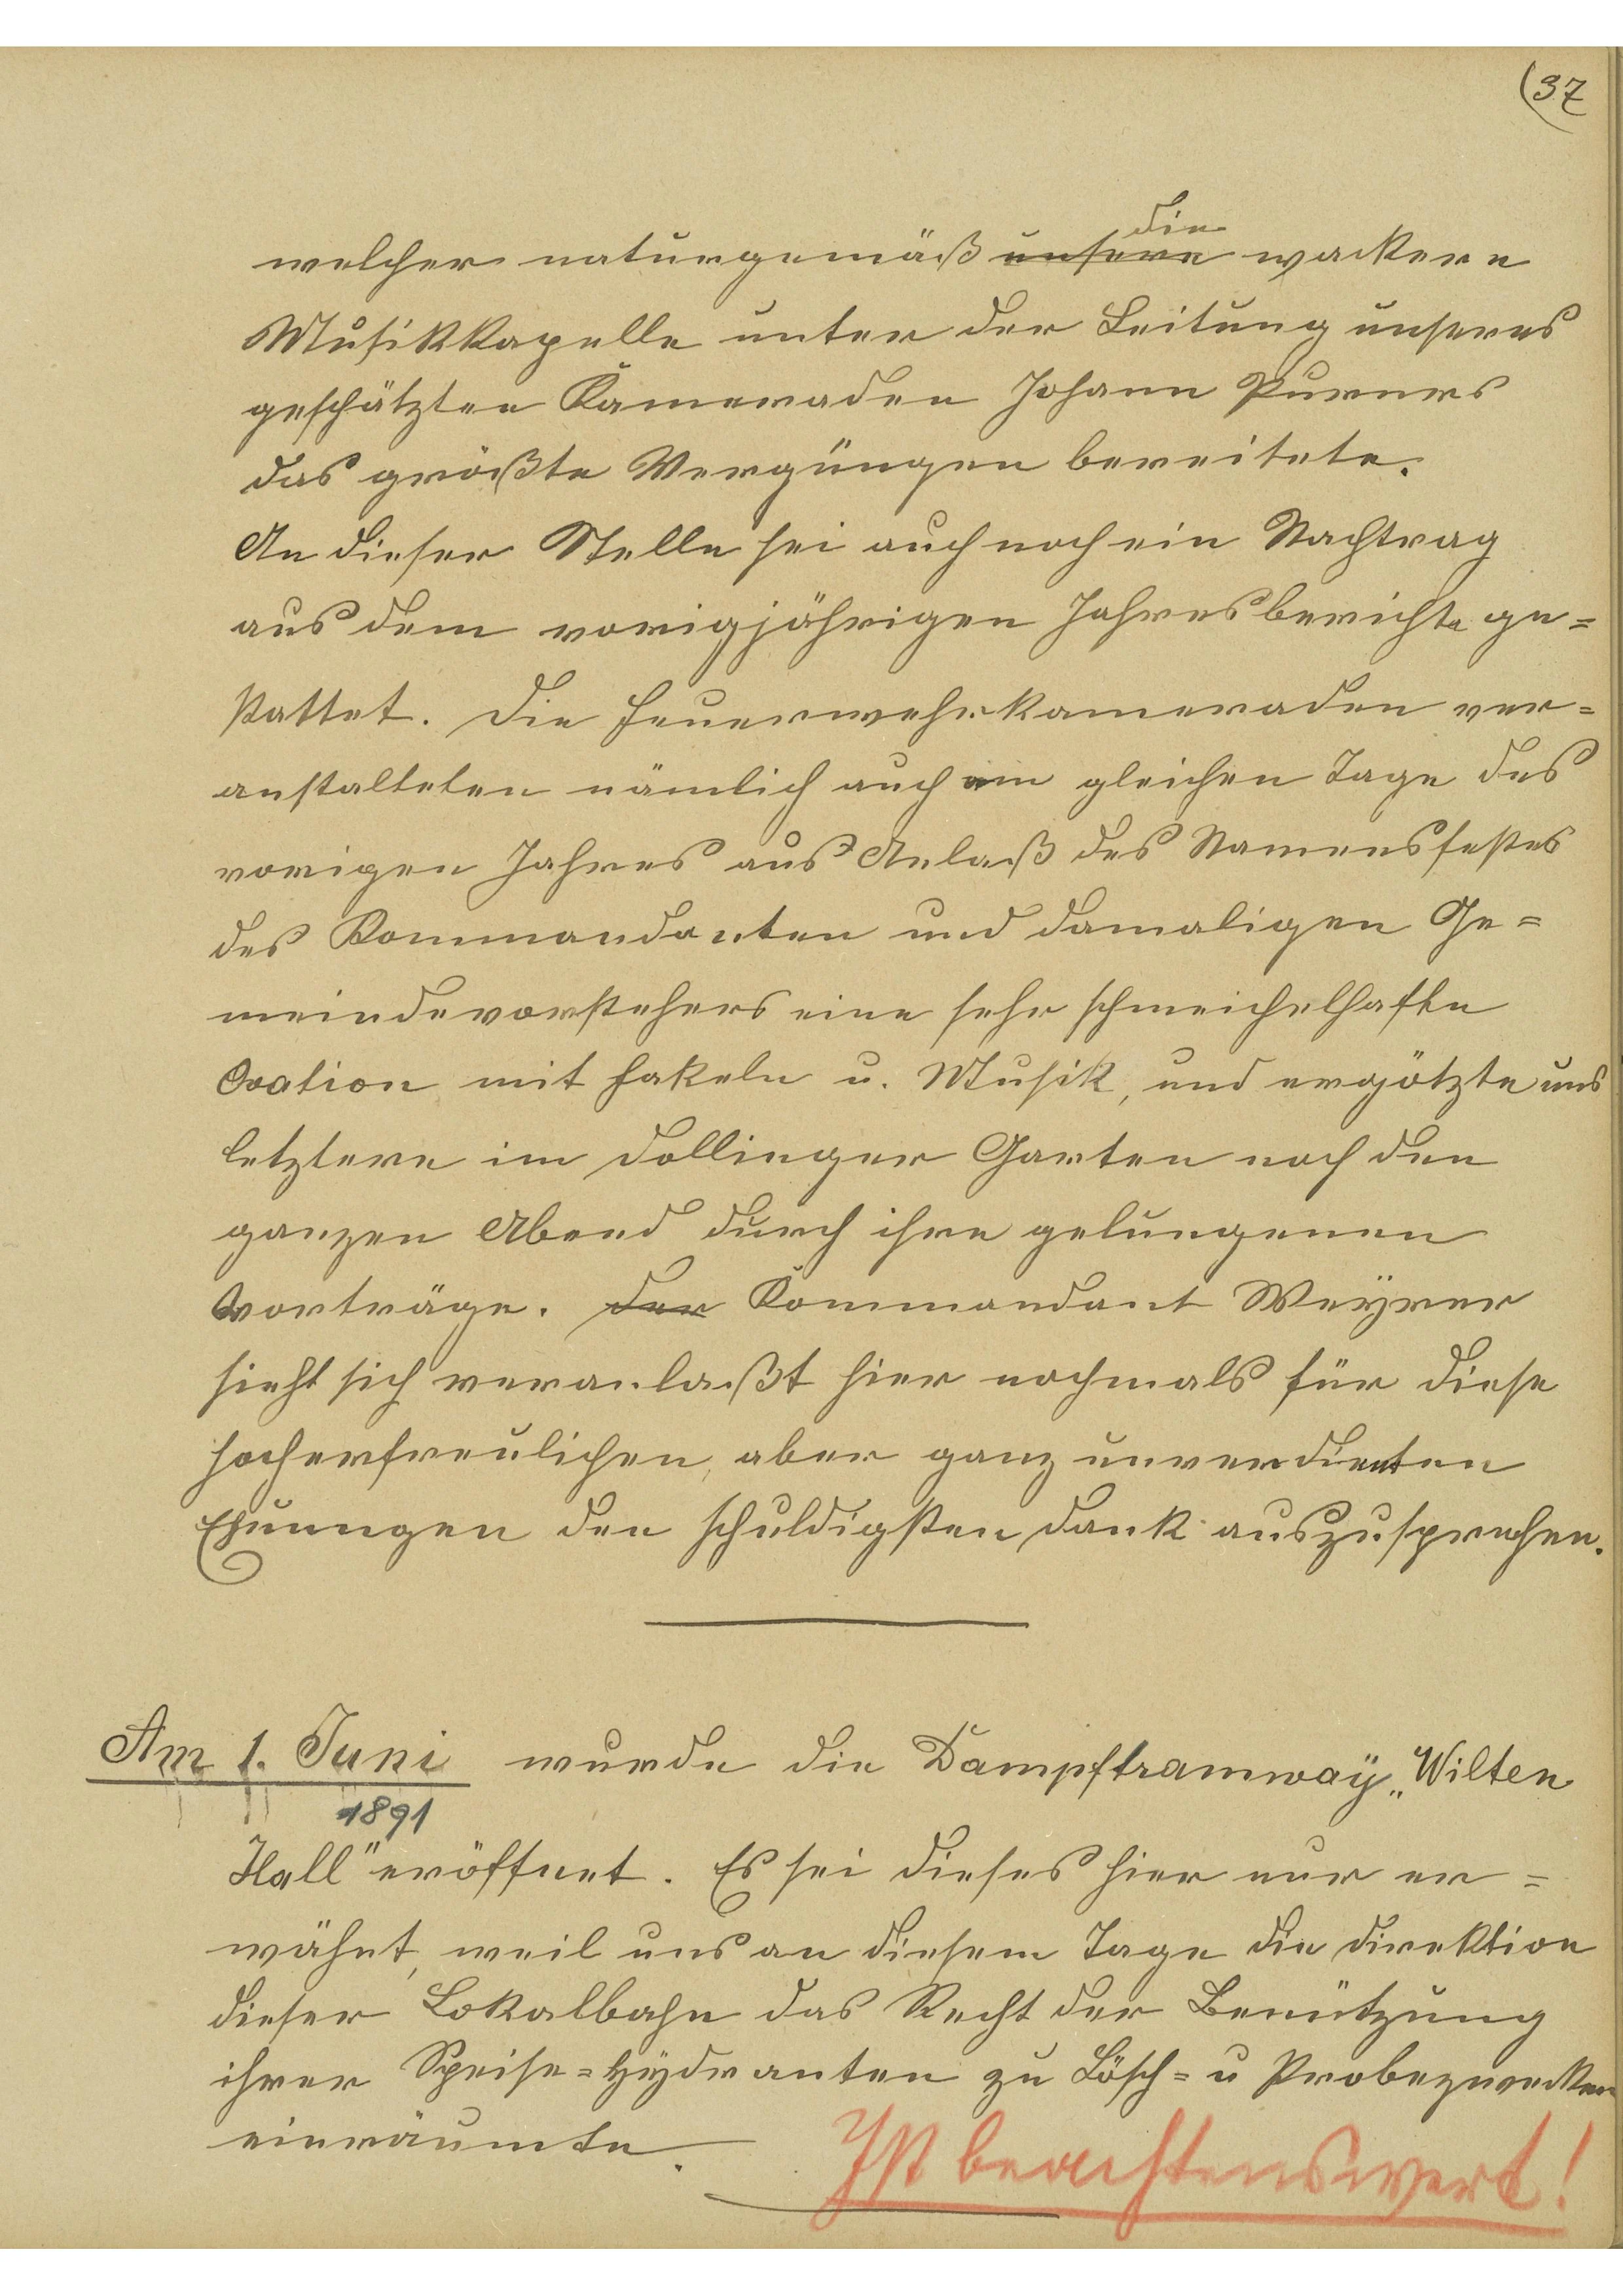 (37
welcher naturgemäß ~~unsere~~ die wackere
Musikkapelle unter der Leitung unseres
geschätzten Kameraden Johann Purners
das größte Vergüngen bereitete.
An dieser Stelle sei auch noch ein Nachtrag
aus dem vorigjährigen Jahresberichte ge=
stattet. Die Feuerwehrkameraden ver=
anstalteten nämlich auch am gleichen Tage des
vorigen Jahres aus Anlaß des Namensfestes
des Kommandanten und damaligen Ge=
meindevorstehers eine sehr schmeichelhafte
Ovation mit Fakeln u. Musik, und ergötzte uns
letztere im Dollinger Garten noch den
ganzen Abend durch ihre gelungenen
Vorträge. ~~Der~~ Kommandant Weyrer
sieht sich veranlaßt hier nochmals für diese
hocherfreulichen, aber ganz unverdienten
den schuldigsten Dank auszusprechen.
Am 1. Juni wurde die Dampftramway „Wilten
1891
Hall" eröffnet. Es sei dieses hier nur er=
wähnt, weil uns an diesem Tage die Direktion
dieser Lokalbahn das Recht der Benützung
ihrer Speise=Hydranten zu Lösch= u Probezwecken
einräumte.
Ist beachtenswert!